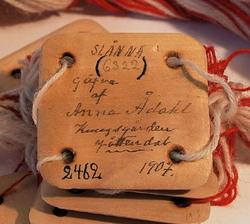 SLÄNNA
(6322)
Gåfva
af
Anna Ådahl
Kungsgården
Jättendal
2462 1907.